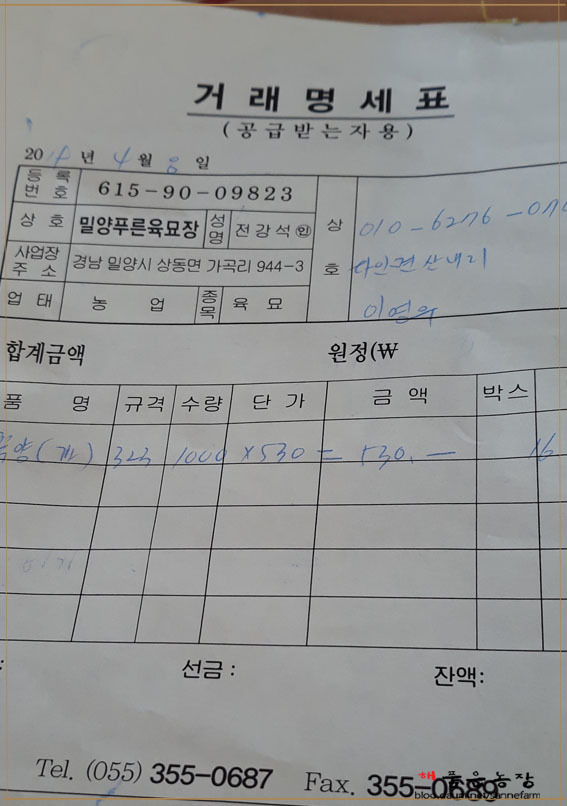 거 래 명 세 표
(공급받는자용)
20 년 4 월 8 일
등 록 번 호 615-90-09823
상 호 밀양푸른육묘장 성명 전강석 ㊞
사업장 주 소 경남 밀양시 상동면 가곡리 944-3
업 태 농 업 종목 육 묘
상 호
010-6276-
산내리
이영우
합계금액 원정(₩
품 명 규격 수량 단 가 금 액 박스
323 1000 ×530 = 530.— 16
선금: 잔액:
Tel. (055) 355-0687 Fax. 355-0689
해 품은농장
blog.daum.net/sannefarm